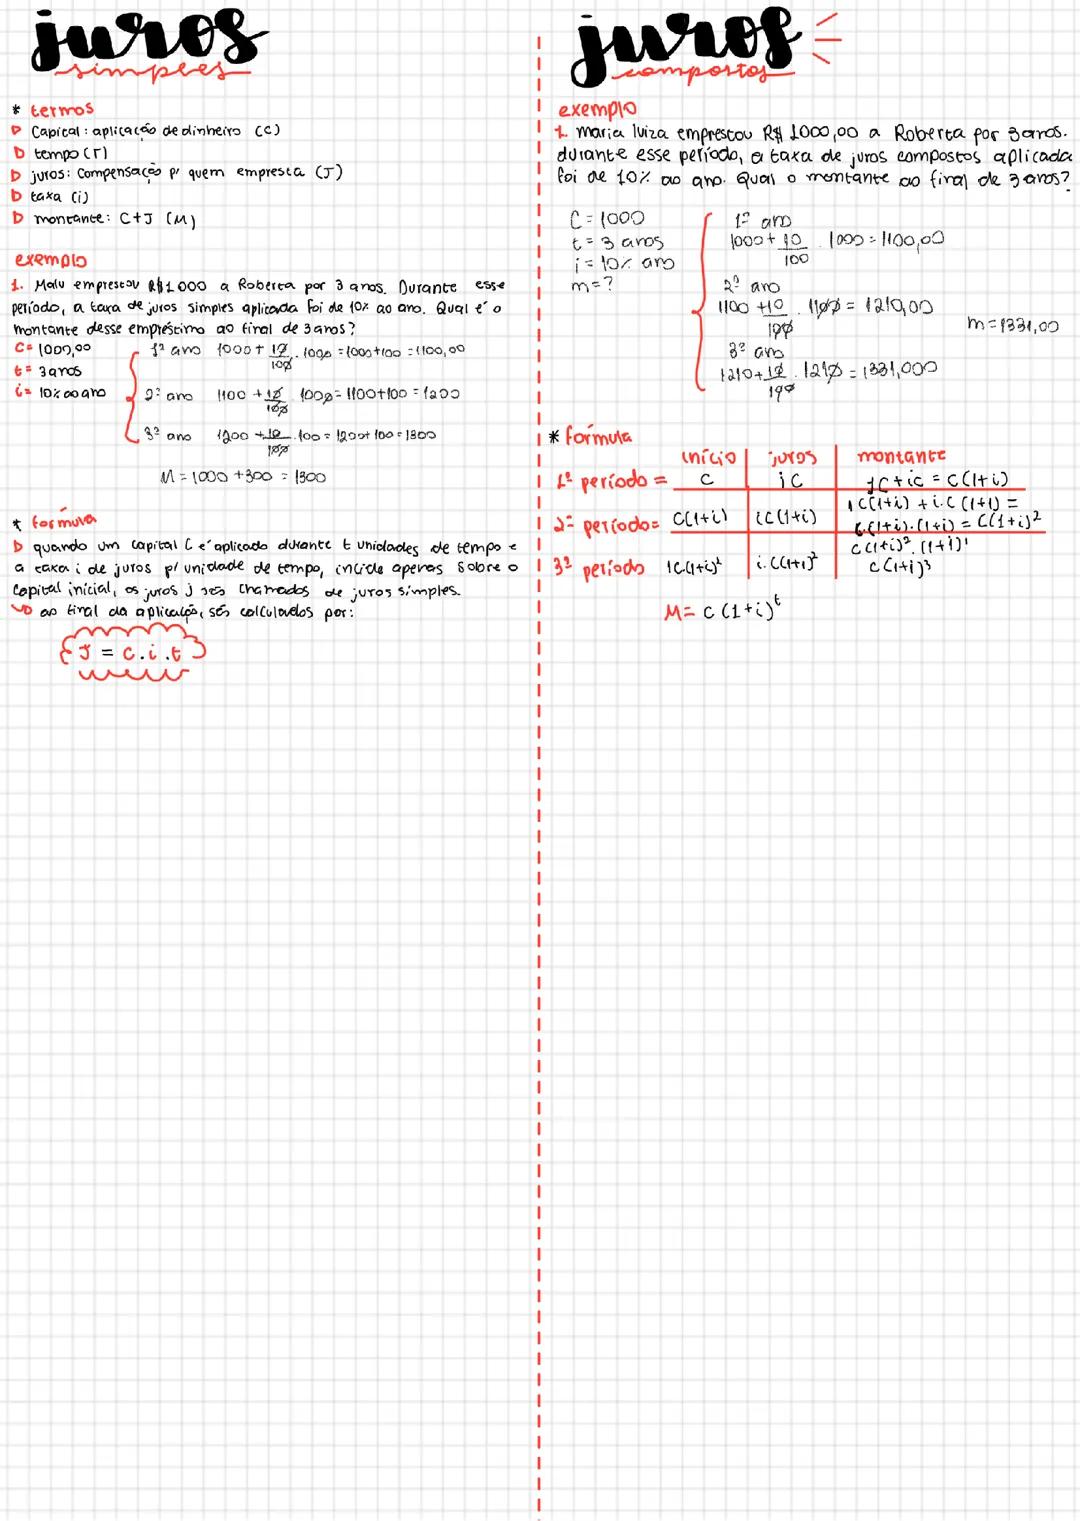 juros
simples
* termos
Capital: aplicação de dinheiro (C)
tempo (T)
juros: Compensação p/ quem empresta (J)
taxa (i)
montante: C+J (M)
exemplo
1. Malu emprestou R$1000 a Roberta por 3 anos. Durante esse
período, a taxa de juros simples aplicada foi de 10% ao ano. Qual é o
montante desse empréstimo ao final de 3 anos?
C= 1000,00
t= 3 anos
i= 10% ao ano
1º ano 1000 + 10/100 . 1000 = 1000+100 = 1100,00
2º ano 1100 + 10/100 . 1000 = 1100+100 = 1200
3º ano 1200 + 10/100 . 100 = 1200+100 = 1300
M = 1000 + 300 = 1300
* fórmula
quando um capital C é aplicado durante t unidades de tempo e
a taxa i de juros p/ unidade de tempo, incide apenas sobre o
capital inicial, os juros j são chamados de juros simples.
ao final da aplicação, são calculados por:
J = c.i.t
juros
compostos
exemplo
1. maria luiza emprestou R$ 1000,00 a Roberta por 3 anos.
durante esse período, a taxa de juros compostos aplicada
foi de 10% ao ano. Qual o montante ao final de 3 anos?
C = 1000
t = 3 anos
i = 10% ano
m = ?
1º ano
1000 + 10/100 . 1000 = 1100,00
2º ano
1100 + 10/100 . 1100 = 1210,00
3º ano
1210 + 10/100 . 1210 = 1331,000
m = 1331,00
* fórmula
início juros montante
1º período = C iC 1C + iC = C(1+i)
2º período = C(1+i) iC(1+i) 1C(1+i) + i.C(1+i) =
C.(1+i).(1+i) = C(1+i)²
3º período 1C.(1+i)² i.C(1+i)² C(1+i)².(1+i)¹
C(1+i)³
M = C(1+i)ᵗ